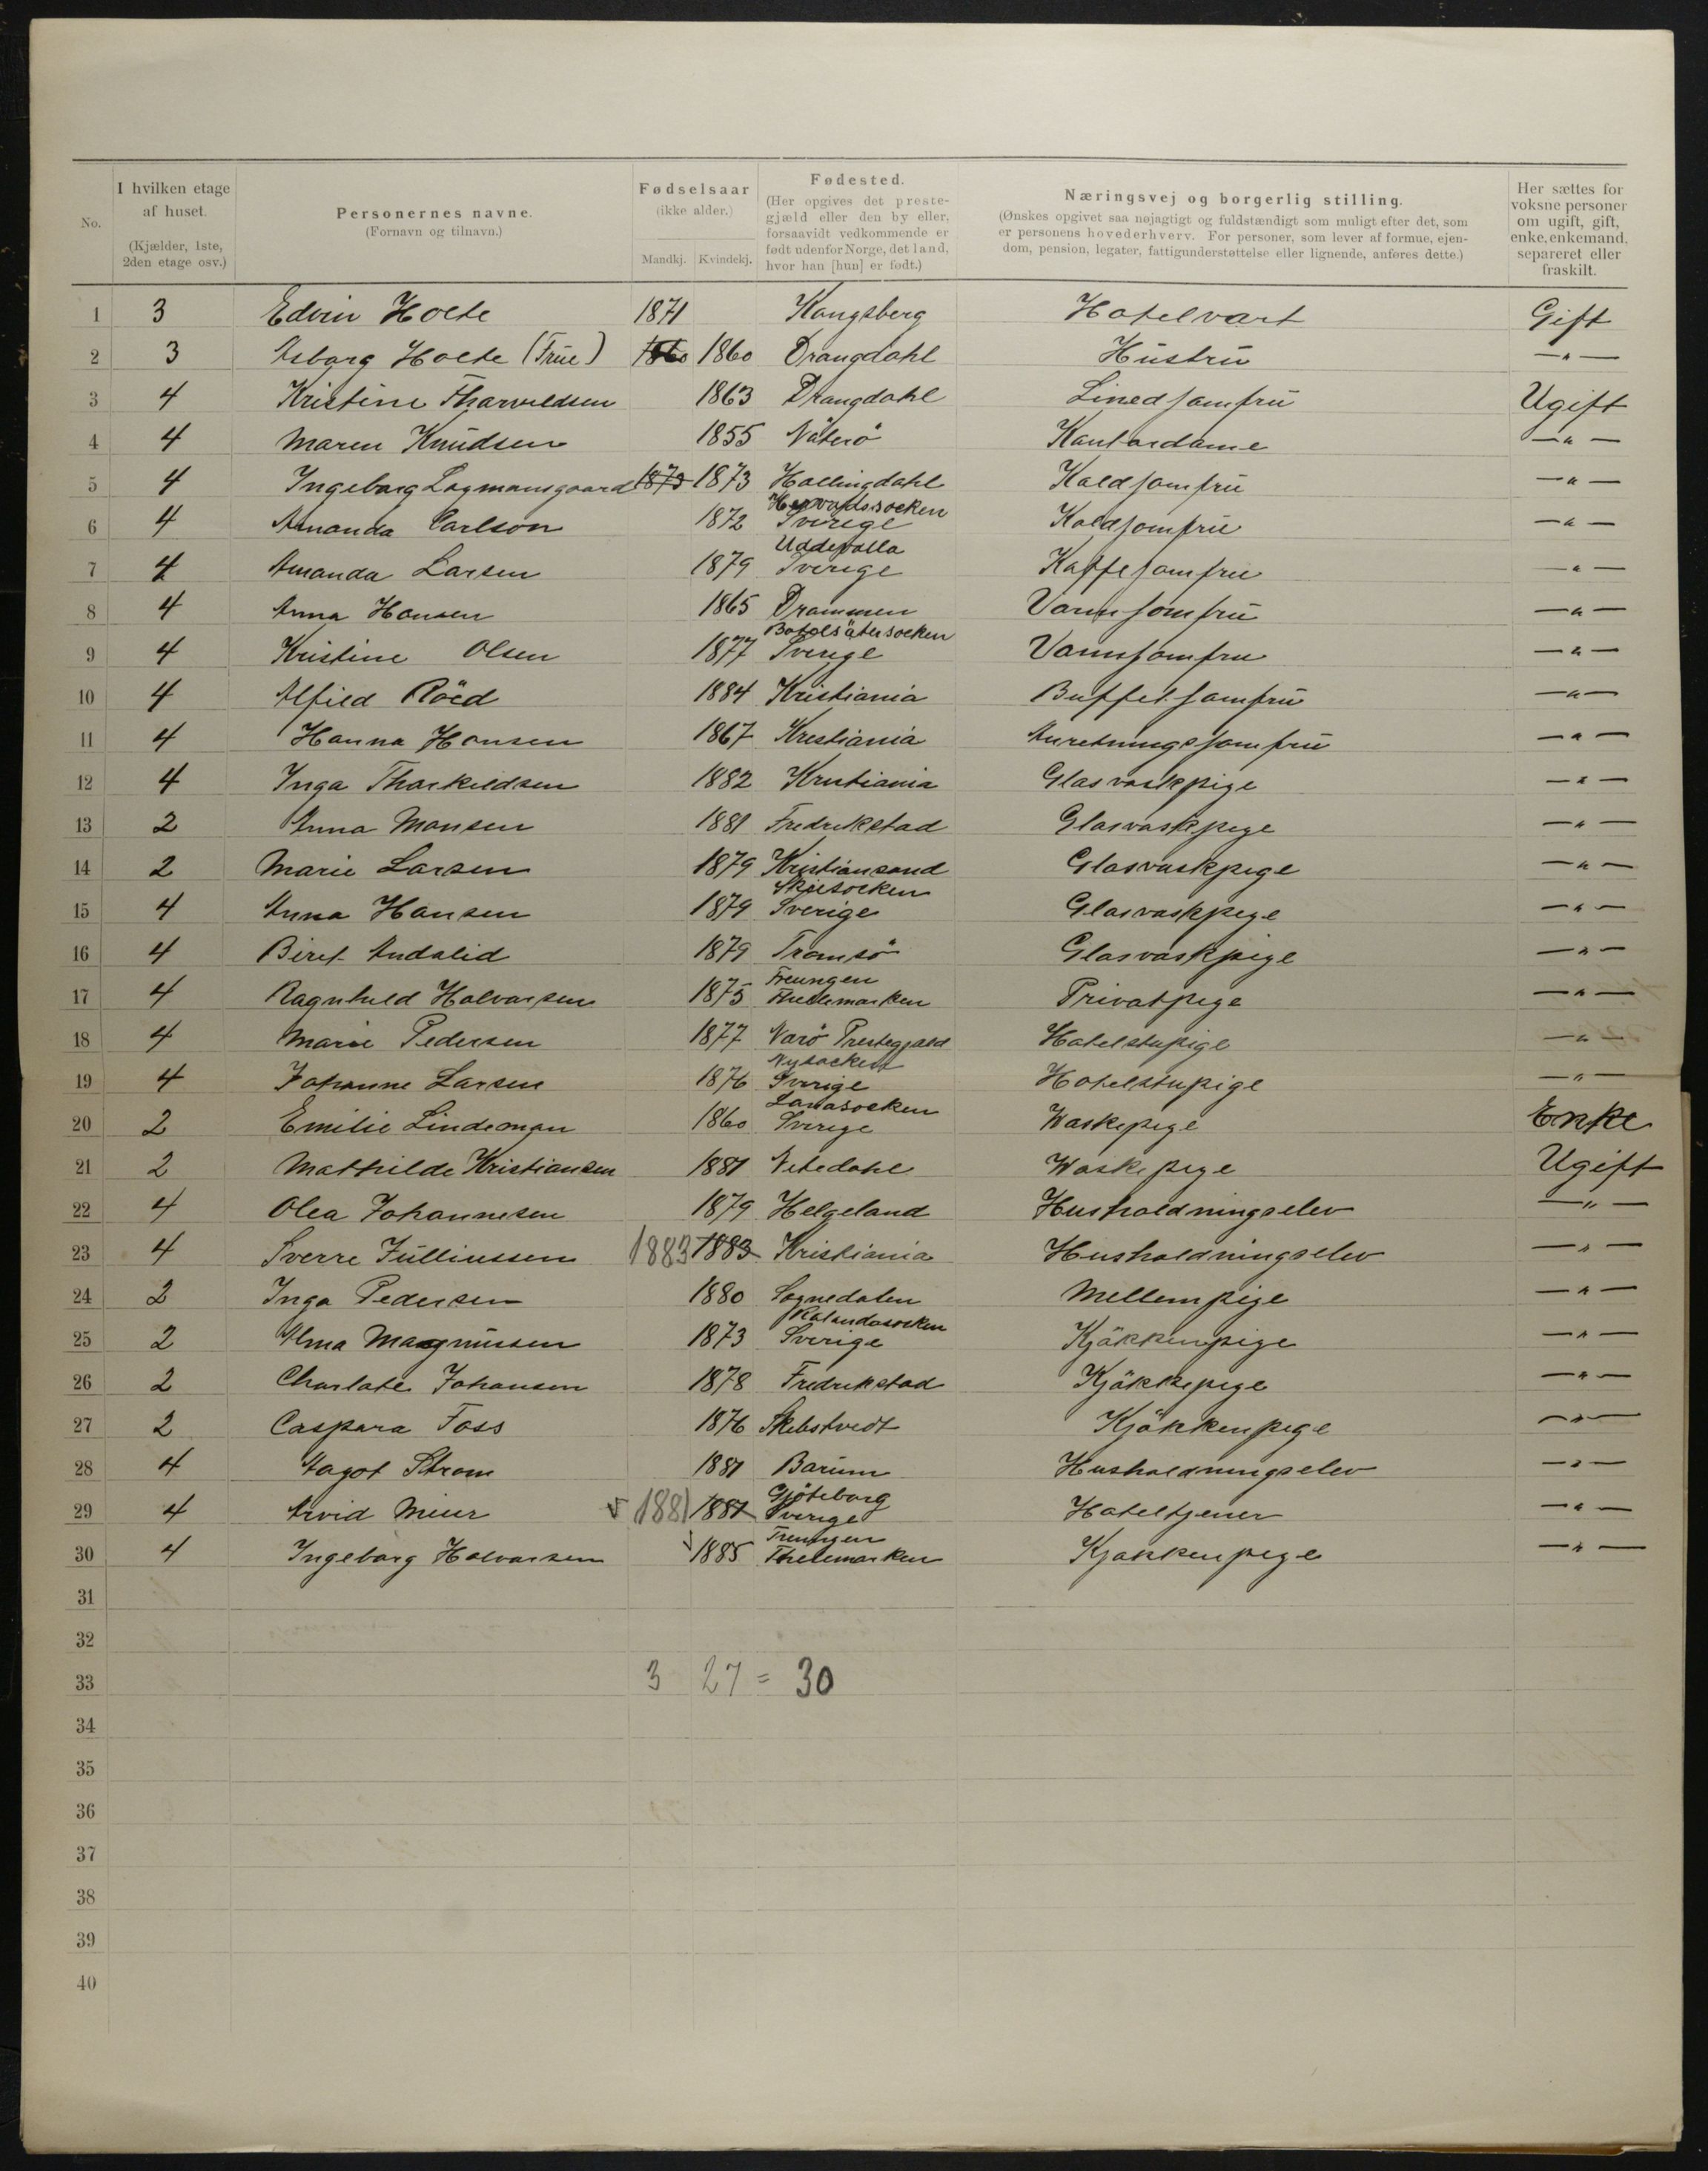 No.
I hvilken etage af huset. (Kjælder, 1ste, 2den etage osv.)
Personernes navne. (Fornavn og tilnavn.)
Fødselsaar (ikke alder.) Mandkj. Kvindekj.
Fødested. (Her opgives det prestegjæld eller den by eller, forsaavidt vedkommende er født udenfor Norge, det land, hvor han [hun] er født.)
Næringsvej og borgerlig stilling. (Ønskes opgivet saa nøjagtigt og fuldstændigt som muligt efter det, som er personens hovederhverv. For personer, som lever af formue, ejendom, pension, legater, fattigunderstøttelse eller lignende, anføres dette.)
Her sættes for voksne personer om ugift, gift, enke, enkemand, separeret eller fraskilt.
1 3 Edvin Holte 1871 Kongsberg Hotelvært Gift
2 3 Asborg Holte (Frue) 1860 1860 Drangdahl Hustru —„—
3 4 Kristine Tharveldsen 1863 Drangdahl Linedjomfru Ugift
4 4 Maren Knudsen 1855 Nøterö Kantordame —„—
5 4 Ingeborg Lagmansgaard 1873 1873 Hallingdahl Koldjomfru —„—
6 4 Amanda Carlson 1872 Sverige Koldjomfru —„—
7 4 Amanda Larsen 1879 Uddevalla Sverige Kaffejomfru —„—
8 4 Anna Hansen 1865 Drammen Varmjomfru —„—
9 4 Kristine Olsen 1877 Botolsätersocken Sverige Varmjomfru —„—
10 4 Alfild Röed 1884 Kristiania Buffetjomfru —„—
11 4 Hanna Hansen 1867 Kristiania Anretningsjomfru —„—
12 4 Inga Tharkeldsen 1882 Kristiania Glasvaskpige —„—
13 2 Anna Monsen 1881 Fredrekstad Glasvaskpege —„—
14 2 Marie Larsen 1879 Kristiansand Glasvaskpege —„—
15 4 Anna Hansen 1879 Skeesocken Sverige Glasvaskpege —„—
16 4 Biret Andalid 1879 Tromsö Glasvaskpige —„—
17 4 Ragnhild Halvarsen 1875 Treungen Thelemarken Privatpege —„—
18 4 Marie Pedersen 1877 Narö Prestegjæld Hotelstupige —„—
19 4 Johanne Larsen 1876 Nysocken Sverige Hotelstupige —„—
20 2 Emilie Lindeman 1860 Lanasocken Sverige Waskepege Enke
21 2 Mathilde Kristiansen 1881 Netedahl Waskepege Ugift
22 4 Olea Johannesen 1879 Helgeland Husholdningselev —„—
23 4 Sverre Julliussen 1883 1883 Kristiania Husholdningselev —„—
24 2 Inga Pedersen 1880 Sognedalen Mellempige —„—
25 2 Alma Magnussen 1873 Sverige Kjökkenpige —„—
26 2 Charlote Johansen 1878 Fredrekstad Kjökkepege —„—
27 2 Caspara Foss 1876 Skebstvedt Kjökkenpege —„—
28 4 Aagot Strøm 1881 Barum Husholdningselev —„—
29 4 Arvid Meier 1881 1881 Gjöteborg Sverige Hoteltjener —„—
30 4 Ingeborg Halvarsen 1885 Treungen Thelemarken Kjøkkenpege —„—
31
32
33 3 27 = 30
34
35
36
37
38
39
40